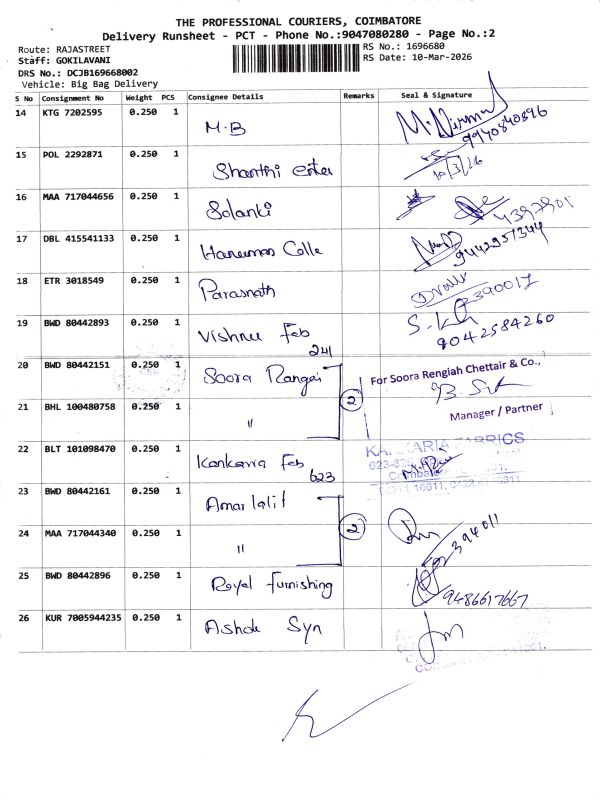 THE PROFESSIONAL COURIERS, COIMBATORE
Delivery Runsheet - PCT - Phone No.:9047080280 - Page No.:2
Route: RAJASTREET
RS No.: 1696680
Staff: GOKILAVANI
RS Date: 10-Mar-2026
DRS No.: DCJB169668002
Vehicle: Big Bag Delivery
S No Consignment No Weight PCS Consignee Details Remarks Seal & Signature
14 KTG 7202595 0.250 1 M.B M. Nirmal
9940840896
15 POL 2292871 0.250 1 Shanthi enter 10/3/26
16 MAA 717044656 0.250 1 Solanki 4397901
17 DBL 415541133 0.250 1 Hanuman Colle 9442951344
18 ETR 3018549 0.250 1 Parasnath 2390017
19 BWD 80442893 0.250 1 Vishnu Feb 241 9042584260
20 BWD 80442151 0.250 1 Soora Rangai 2 For Soora Rengiah Chettair & Co.,
21 BHL 100480758 0.250 1 " Manager / Partner
22 BLT 101098470 0.250 1 Kankarra Feb 623 KANKARIA FABRICS
23 BWD 80442161 0.250 1 Amar lalit 2
24 MAA 717044340 0.250 1 " 2394011
25 BWD 80442896 0.250 1 Royal furnishing 9486617667
26 KUR 7005944235 0.250 1 Ashok Syn